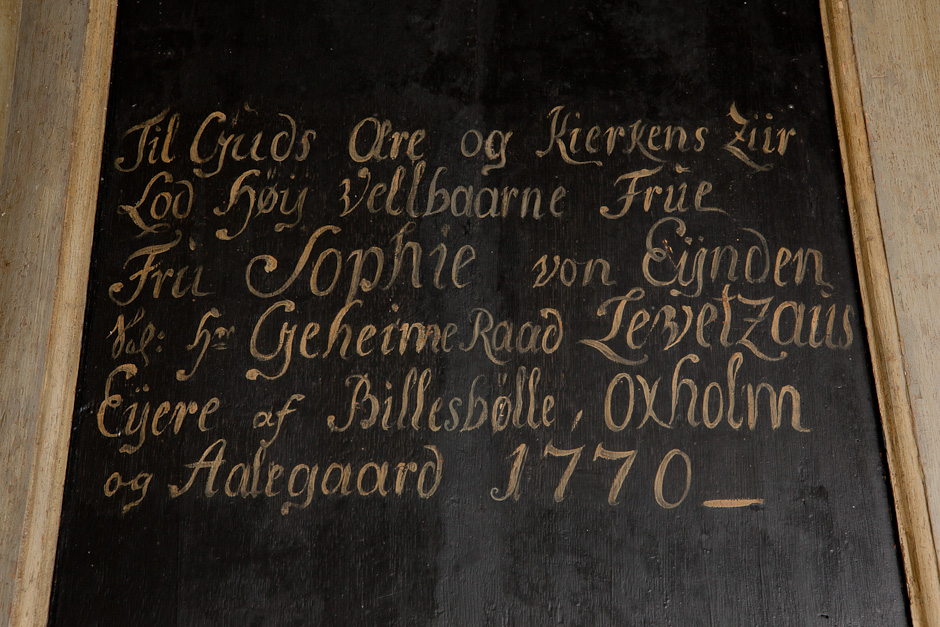 Til Guds Ære og Kierkens Ziir
Lod Høÿ Vellbaarne Frue
Fru Sophie von Eÿnden
Sal: Hr Geheime Raad Levetzaus
Eÿere af Billesbølle, Oxholm
og Aalegaard 1770